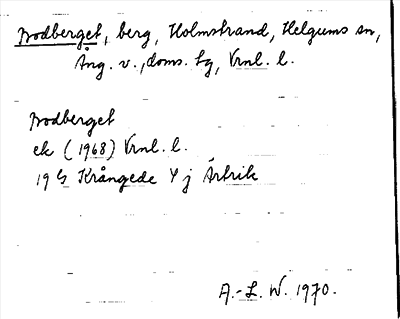 Brodberget, berg, Holmstrand, Helgums sn,
Ång. v., doms. sg, Vrnl. l.
Brodberget
ek (1968) Vrnl. l.
19 G Krångede 4 j Årtrik
A.-L. W. 1970.